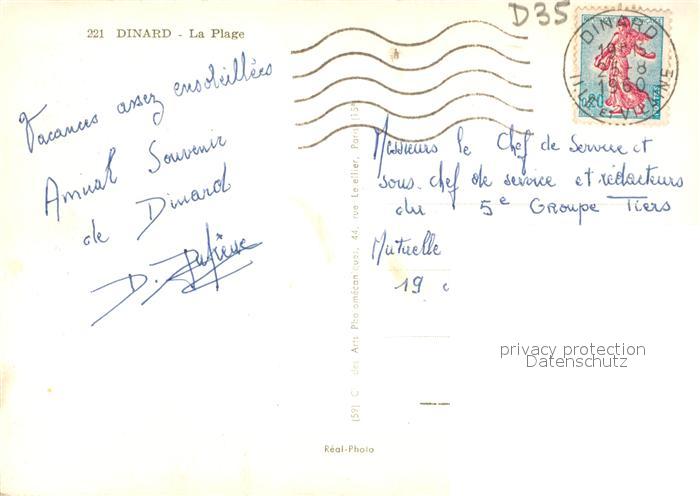 221 DINARD - La Plage
D35
DINARD
1960
ILLE-ET-VILAINE
0,20
Vacances assez ensoleillées
Amical Souvenir
de Dinard
D.
Messieurs le Chef de Service et
sous-chef de service et rédacteurs
du 5e Groupe Tiers
Mutuelle
19
(59) C des Arts Photomécaniques, 44, rue Letellier, Paris (15e
privacy protection
Datenschutz
Réal-Photo